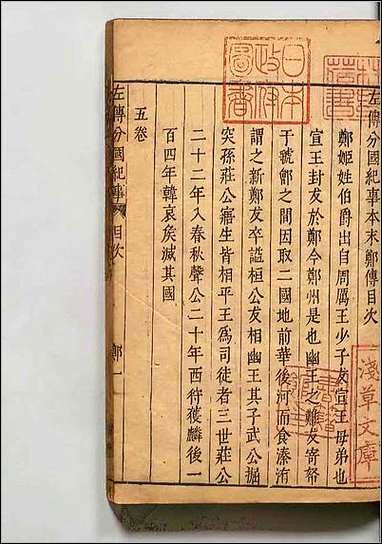 左傳分國紀事本末鄭傳目次
鄭姬姓伯爵出自周厲王少子友宣王母弟也
宣王封友於鄭今鄭州是也幽王之難友寄帑
于虢鄶之間因取二國地前華後河而食溱洧
謂之新鄭友卒謚桓公友相幽王其子武公掘
突孫莊公寤生皆相平王爲司徒者三世莊公
二十二年入春秋聲公二十年西狩獲麟後一
百四年韓哀矦滅其國
五卷
左傳分國紀事 目次 鄭一
日本
政府
圖書
淺草文庫